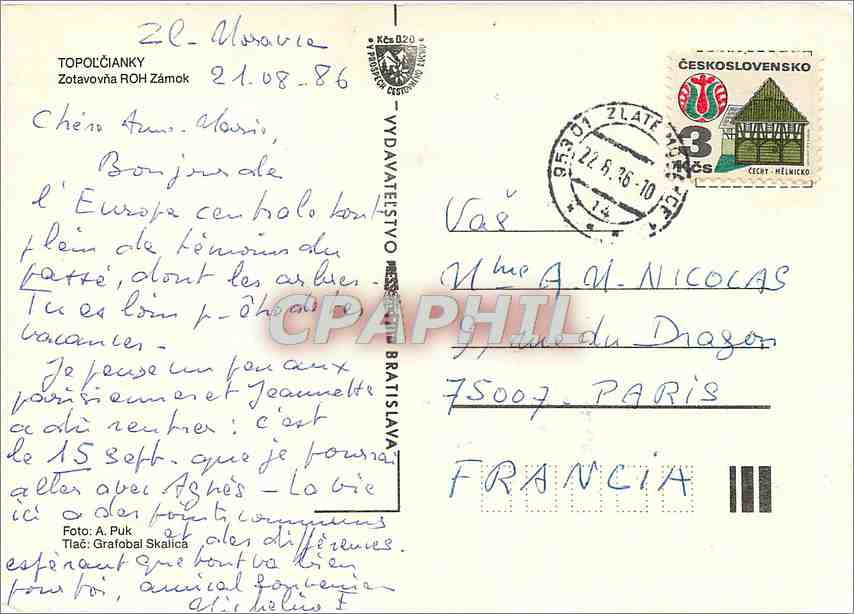 TOPOĽČIANKY
Zotavovňa ROH Zámok
Zl. Moravce
21.08-86
Bonjour de
l'Europe centrale
plein de témoins du
passé, dont les arbres.
Tu es loin p-ê de tes
vacances.
Je pense un peu aux
parisiennes et Jeannette
a dû rentrer : c'est
le 15 sept. que je pourrai
aller avec Agnès - La vie
ici a des points communs
et des différences.
espérant que tout va bien
pour toi, amical souvenir
Foto: A. Puk
Tlač: Grafobal Skalica
Kčs 0.20
V PROSPECH CESTOVNÉHO RUCHU
VYDAVATEĽSTVO BRATISLAVA
ČESKOSLOVENSKO
3 Kčs
ČECHY - MĚLNICKO
953 01 ZLATÉ MORAVCE 1
Vaš
Mme A.M. NICOLAS
9, rue du Dragon
75007. PARIS
FRANCIA
CPARPHIL